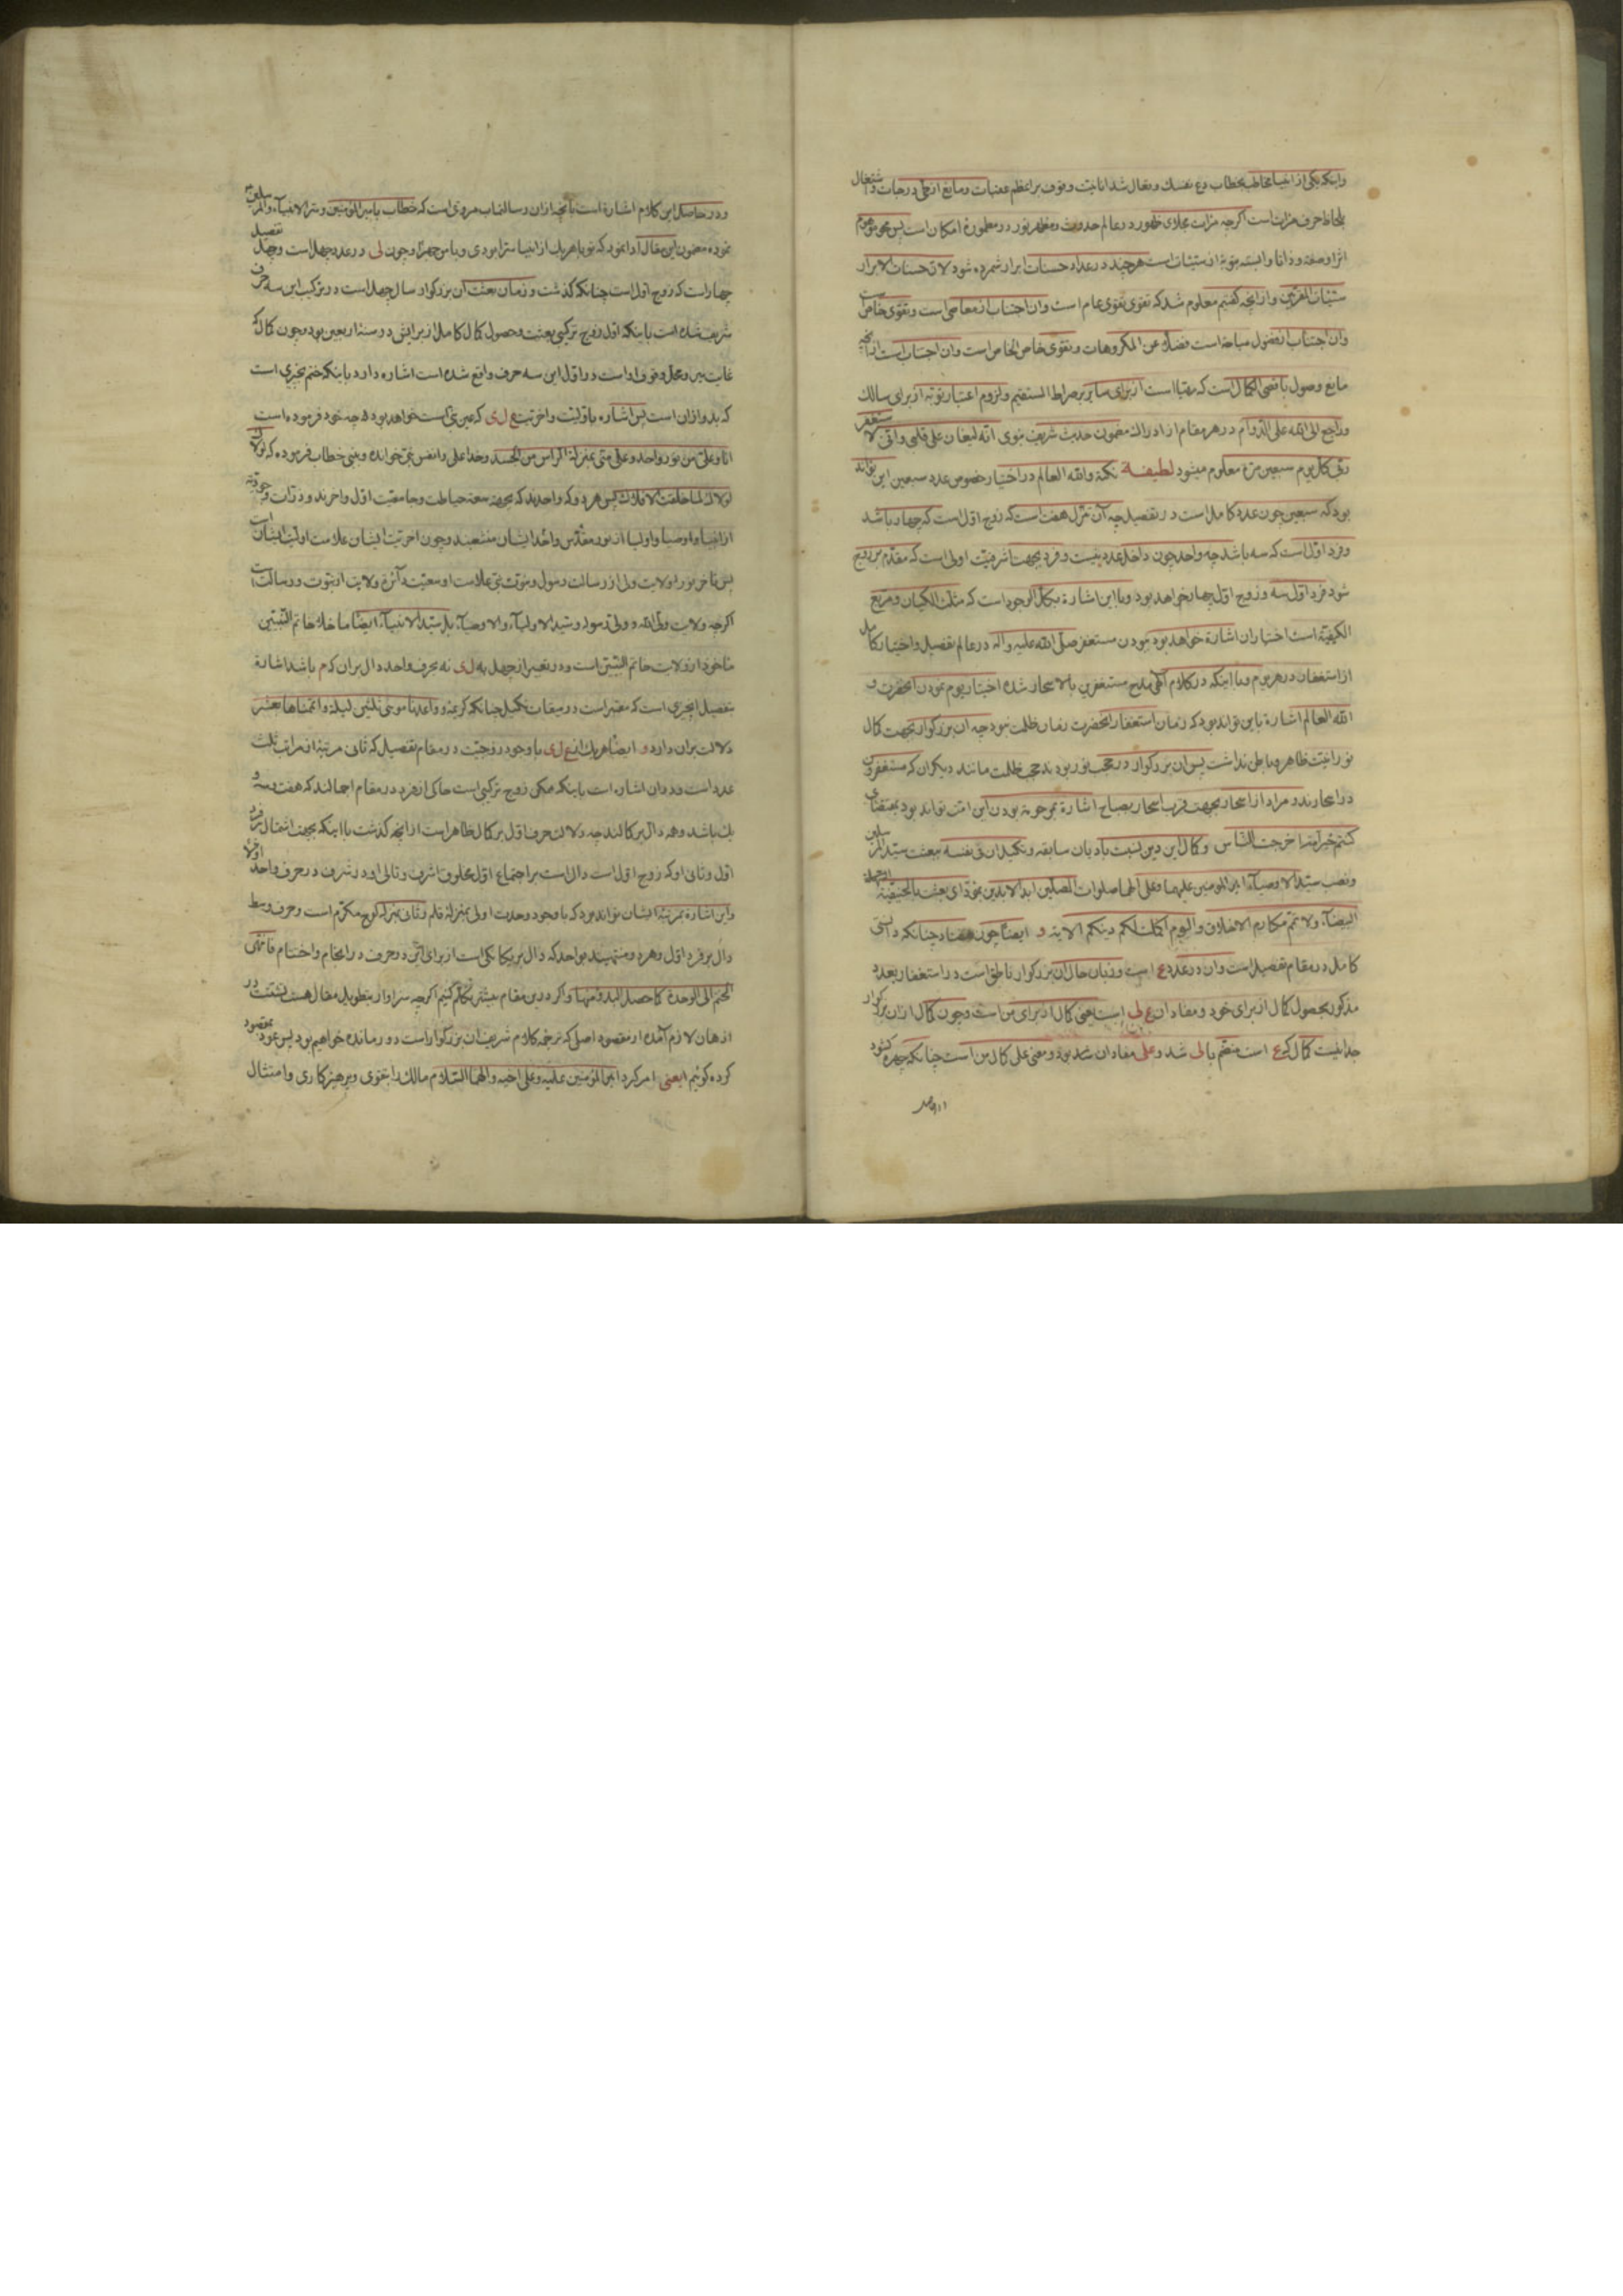 وانکه یکی از انبیا مخاطب بخطاب دع نفسك وتعال شد انانیت و وقوف بر اعظم عقبات ومانع از ترقی درجات واشتغال
بلحاظ حرف مزات است اگرچه مزات مجلای ظهور در عالم حدوث ومظهر نور در معمورهٔ امکان است پس محو موهوم
اثرا وصفة وذاتا والبته توبهٔ از سیئات است هرچند در عداد حسنات ابرار شمرده شود لان حسنات الابرار
سیئات المقربین واز انچه گفتیم معلوم شد که تقوی تقوی عام است وان اجتناب از معاصی است وتقوی خاص
وان اجتناب از فضول مباحة است فضلا عن المکروهات وتقوی خاص الخاص است وان اجتناب است از انچه
مانع وصول باقصی الکمال است که مقیا است از برای سایر بر صراط المستقیم ولزوم اعتبار توبه از برای سالك
وراجع الی الله علی الدوام در هر مقام از ادراك مضمون حدیث شریف نبوی انه لیغان علی قلبی وانی لاستغفر
ربی کل یوم سبعین مرة معلوم میشود لطیفة نکتة والله العالم در اختیار خصوص عدد سبعین این تواند
بود که سبعین چون عدد کامل است در تفصیل چه آن تنزل هفت است که زوج اول است که چهار باشد
وفرد اول است که سه باشد چه واحد چون داخل عدد نیست وفرد بجهت اشرفیت اولی است که مقدم بر زوج
شود فرد اول سه وزوج اول چهار خواهد بود وبا این اشاره بکمال الوجود است که مثلث الکیان ومربع
الکیفیة است اختیار ان اشارة خواهد بود بودن مستغفر صلی الله علیه واله در عالم تفصیل واختیار کامل
از استغفار در هر یوم وبا اینکه در کلام الهی مدح مستغفرین بالاسحار شده اختیار یوم نمودن انحضرت و
الله العالم اشارة باین تواند بود که زمان استغفار انحضرت زمان ظلمت نبود چه ان بزرگوار بجهت کمال
نورانیت ظاهر وباطن نداشت پس ان بزرگوار در حجب نور بود نه حجب ظلمت مانند دیگران که مستغفرون
در اسحارند ومراد از اسحار بجهت قرب اسحار بصباح اشارة بمرحومة بودن این امت تواند بود بمقتضای
کنتم خیر امة اخرجت للناس وکمال این دین نسبت بادیان سابقه وتکمیل ان فی نفسه ببعثت سید المرسلین
ونصب سید الاوصیاء امیر المومنین علیهما وعلی الهما صلوات المصلین ابد الابدین بمؤدای بعثت بالحنیفیة السهلة
البیضاء ولاتمم مکارم الاخلاق والیوم اکملت لکم دینکم الایة و ایضا چون هفتاد چنانکه دانستی
کامل در مقام تفصیل است وان در عدد ع است وزبان حال ان بزرگوار ناطق است در استغفار بعدد
مذکور بحصول کمال از برای خود ومفاد ان ع لی است یعنی کمال از برای من است وچون کمال از ان بزرگوار
جدا نیست کمال که ع است منضم با لی شد وعلی مفاد ان شد بود ومعنی علی کمال من است چنانکه چهره گشود
ودر حاصل این کلام اشارة است بانچه از ان رسالتماب مروی است که خطاب بامیر المؤمنین وسر الانبیاء والمرسلین
نموده مضمون این مقال ادا نمود که تو با هریك از انبیا سرا بودی وبا من جهرا وچون لی در عدد چهل است وچهل تفصیل
چهار است که زوج اول است چنانکه گذشت وزمان بعثت ان بزرگوار سال چهل است در ترکیب این سه حرف
شریف شده است باینکه اول زوج ترکیبی بعثت وحصول کمال کامل از برایش در سنهٔ اربعین بود وچون کمال که
غایت بین ومحل وقوف او است در اول این سه حرف واقع شده است اشاره دارد باینکه ختم بچیزی است
که بدو از ان است پس اشاره باولیت واخریت ع ل ی که عین نبی است خواهد بود چه خود فرموده است
انا وعلی من نور واحد وعلی منی بمنزلة الراس من الجسد وخدا علی وانفس نبی خوانده ونبی خطاب فرموده که لولاك
لولاك لما خلقت الافلاك پس هر دو که واحدند که بجهة سعهٔ حیاطت وجامعیت اول واخرند وذرات وجودیه
از انبیا واوصیا واولیا از نور مقدس واحد ایشان منشعبند وچون اخریت ایشان علامت اولیت ایشان است
پس تاخر نور ولایت ولی از رسالت رسول ونبوت نبی علامت اوسعیت دائرهٔ ولایت از نبوت ورسالت است
اگرچه ولایت ولی الله وولی رسول وسید الاولیاء والاوصیاء بل سید الانبیاء ایضا ما خلا خاتم النبیین
ماخوذ از ولایت خاتم النبیین است ودر تعبیر از چهل به ل ی نه بحرف واحد دال بران که م باشد اشارة
بتفصیل اخری است که معتبر است در میقات تکمیل چنانکه کریمهٔ وواعدنا موسی ثلثین لیلة واتممناها بعشر
دلالت بران دارد و ایضا هریك از ع ل ی با وجود زوجیت در مقام تفصیل که ثانی مرتبهٔ از مراتب ثلث
عدد است ودر ان اشاره است باینکه ممکن زوج ترکیبی است حاکی از فرد در مقام اجمالند که هفت وسه و
یك باشد وهمه دال بر کمالند چه دلالت حرف اول بر کمال ظاهر است از انچه گذشت با اینکه بجهت اشتمال بر فرد
اول وثانی او که زوج اول است دال است بر اجتماع اول مخلوق اشرف وتالی او در شرف در حرف واحد اولا
واین اشارة بمرتبهٔ ایشان تواند بود که با وجود وحدت اولی بمنزلهٔ قلم وثانی بمنزلهٔ لوح مکرم است وحرف وسط
دال بر فرد اول وهر دو منتهیند بواحد که دال بر یکانکی است از برای این دو حرف در انجام واختتام فانتهی
الختم الی الوحدة کما حصل البدو منها واگر درین مقام بیشتر تکلم کنیم اگرچه سزاوار بتطویل مقال هست تشتت در
اذهان لازم آمده از مقصود اصلی که ترجمهٔ کلام شریف ان بزرگوار است دور مانده خواهیم بود پس عود بمقصود
کرده گوئیم یعنی امر کرد امیر المؤمنین علیه وعلی اخیه والهما السلام مالك را بتقوی وپرهیزکاری وامتثال